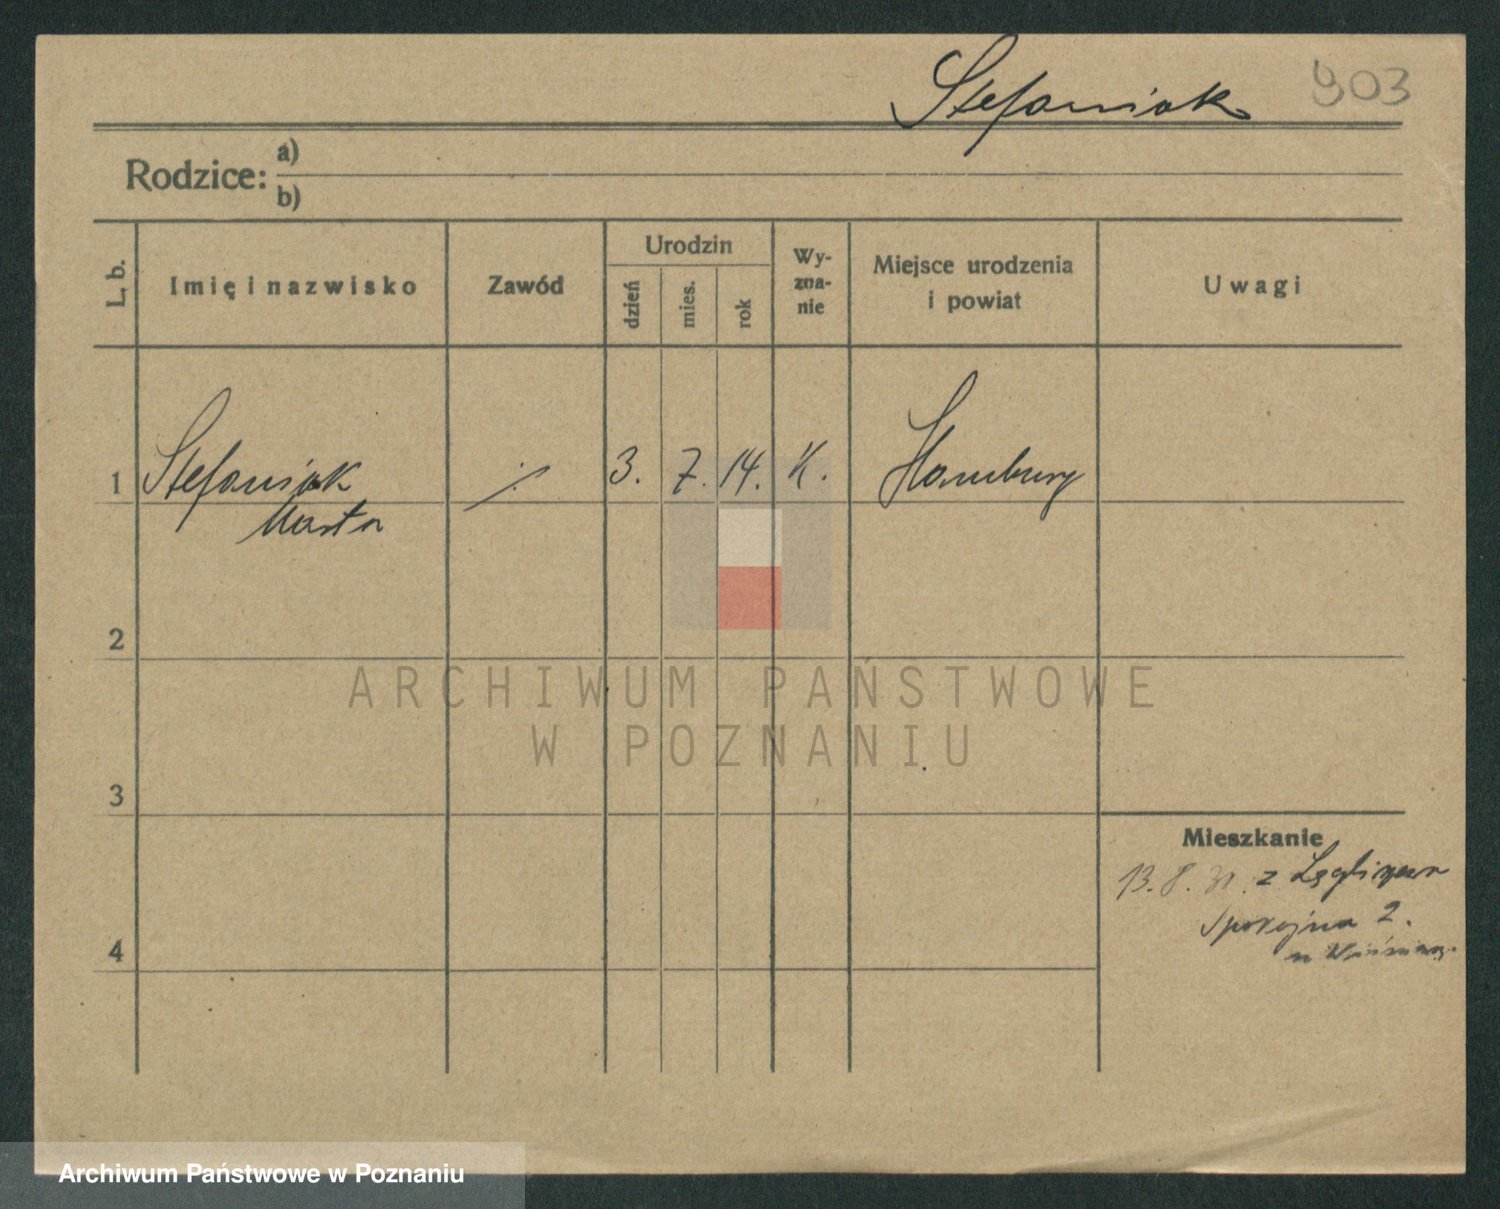 Stefaniak
903
Rodzice: a)
b)
L. b.
Imię i nazwisko
Zawód
Urodzin
dzień
mies.
rok
Wy-
zna-
nie
Miejsce urodzenia
i powiat
Uwagi
1 Stefaniak ./. 3. 7. 14. K. Hamburg
Marta
2
ARCHIWUM PAŃSTWOWE
W POZNANIU
3
Mieszkanie
13. 8. 31. z
Spokojna 2.
4
Archiwum Państwowe w Poznaniu